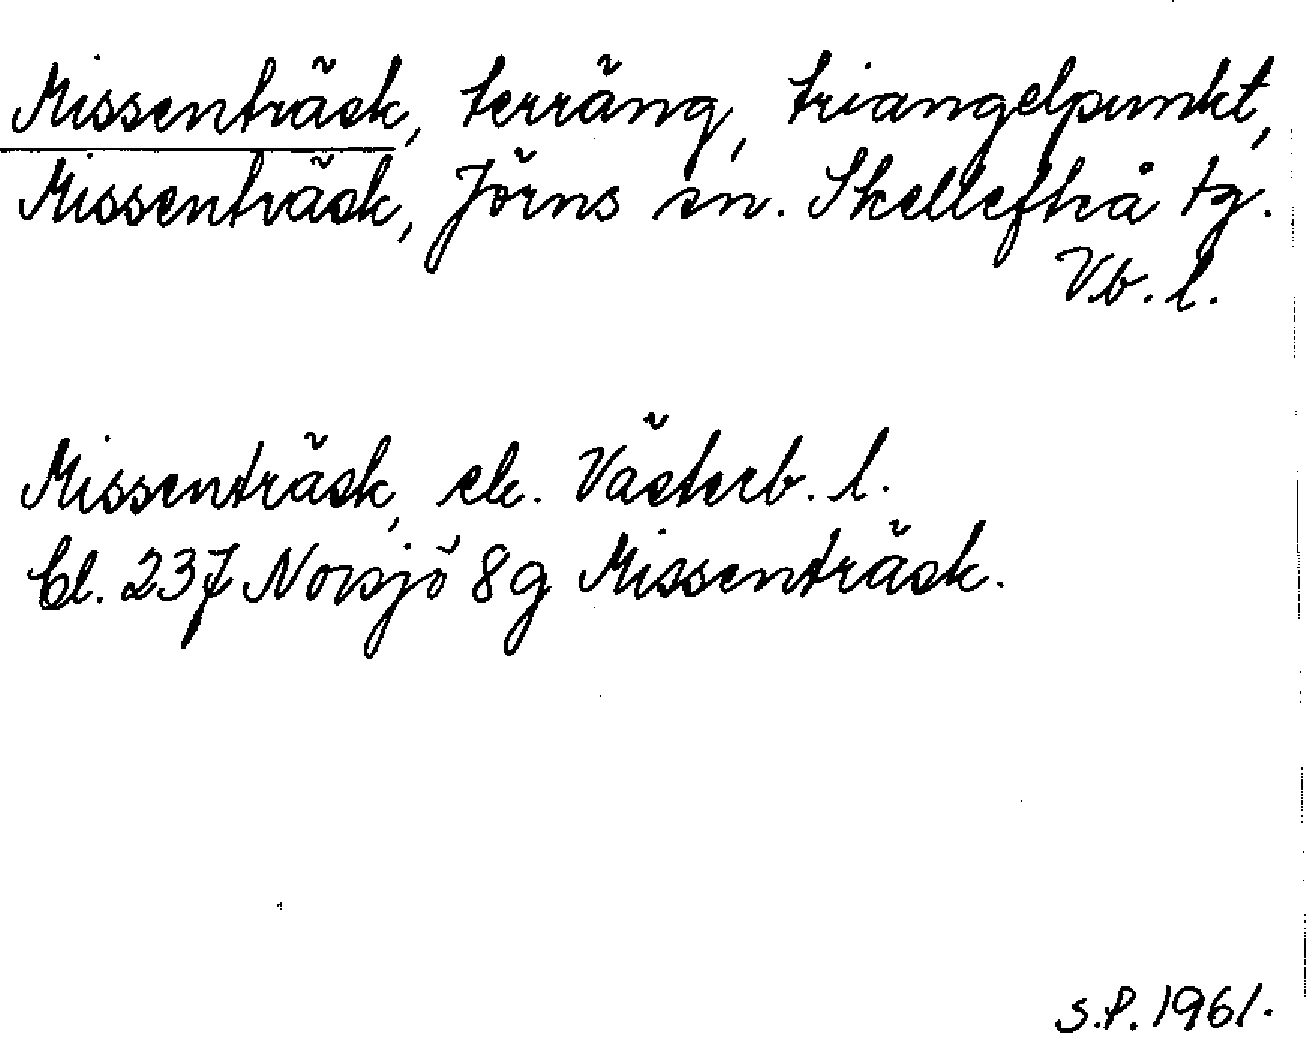 Missenträsk, terräng, triangelpunkt,
Missenträsk, Jörns sn. Skellefteå tg.
Vb. l.
Missenträsk, ek. Västerb. l.
Bl. 237 Norsjö 8g Missenträsk.
S.P. 1961.